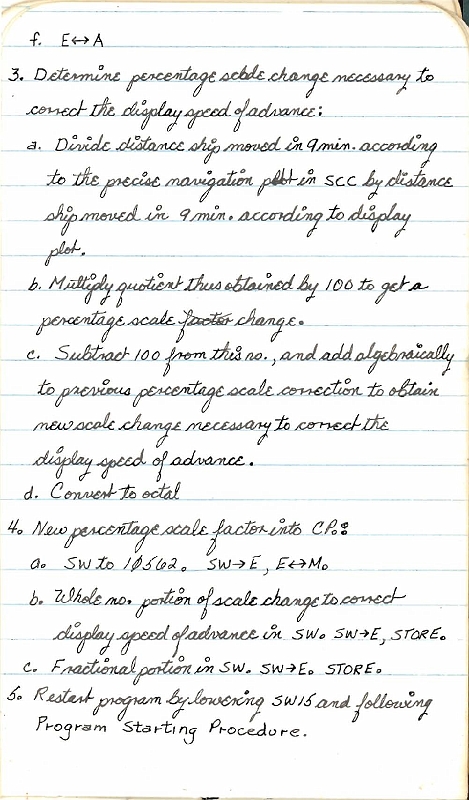 f. E↔A
3. Determine percentage scale change necessary to
correct the display speed of advance:
a. Divide distance ship moved in 9 min. according
to the precise navigation plot in SCC by distance
ship moved in 9 min. according to display
plot.
b. Multiply quotient thus obtained by 100 to get a
percentage scale factor change.
c. Subtract 100 from this no., and add algebraically
to previous percentage scale correction to obtain
new scale change necessary to correct the
display speed of advance.
d. Convert to octal
4. New percentage scale factor into CP.:
a. SW to 10562. SW→E, E↔M.
b. Whole no. portion of scale change to correct
display speed of advance in SW. SW→E, STORE.
c. Fractional portion in SW. SW→E. STORE.
5. Restart program by lowering SW15 and following
Program Starting Procedure.